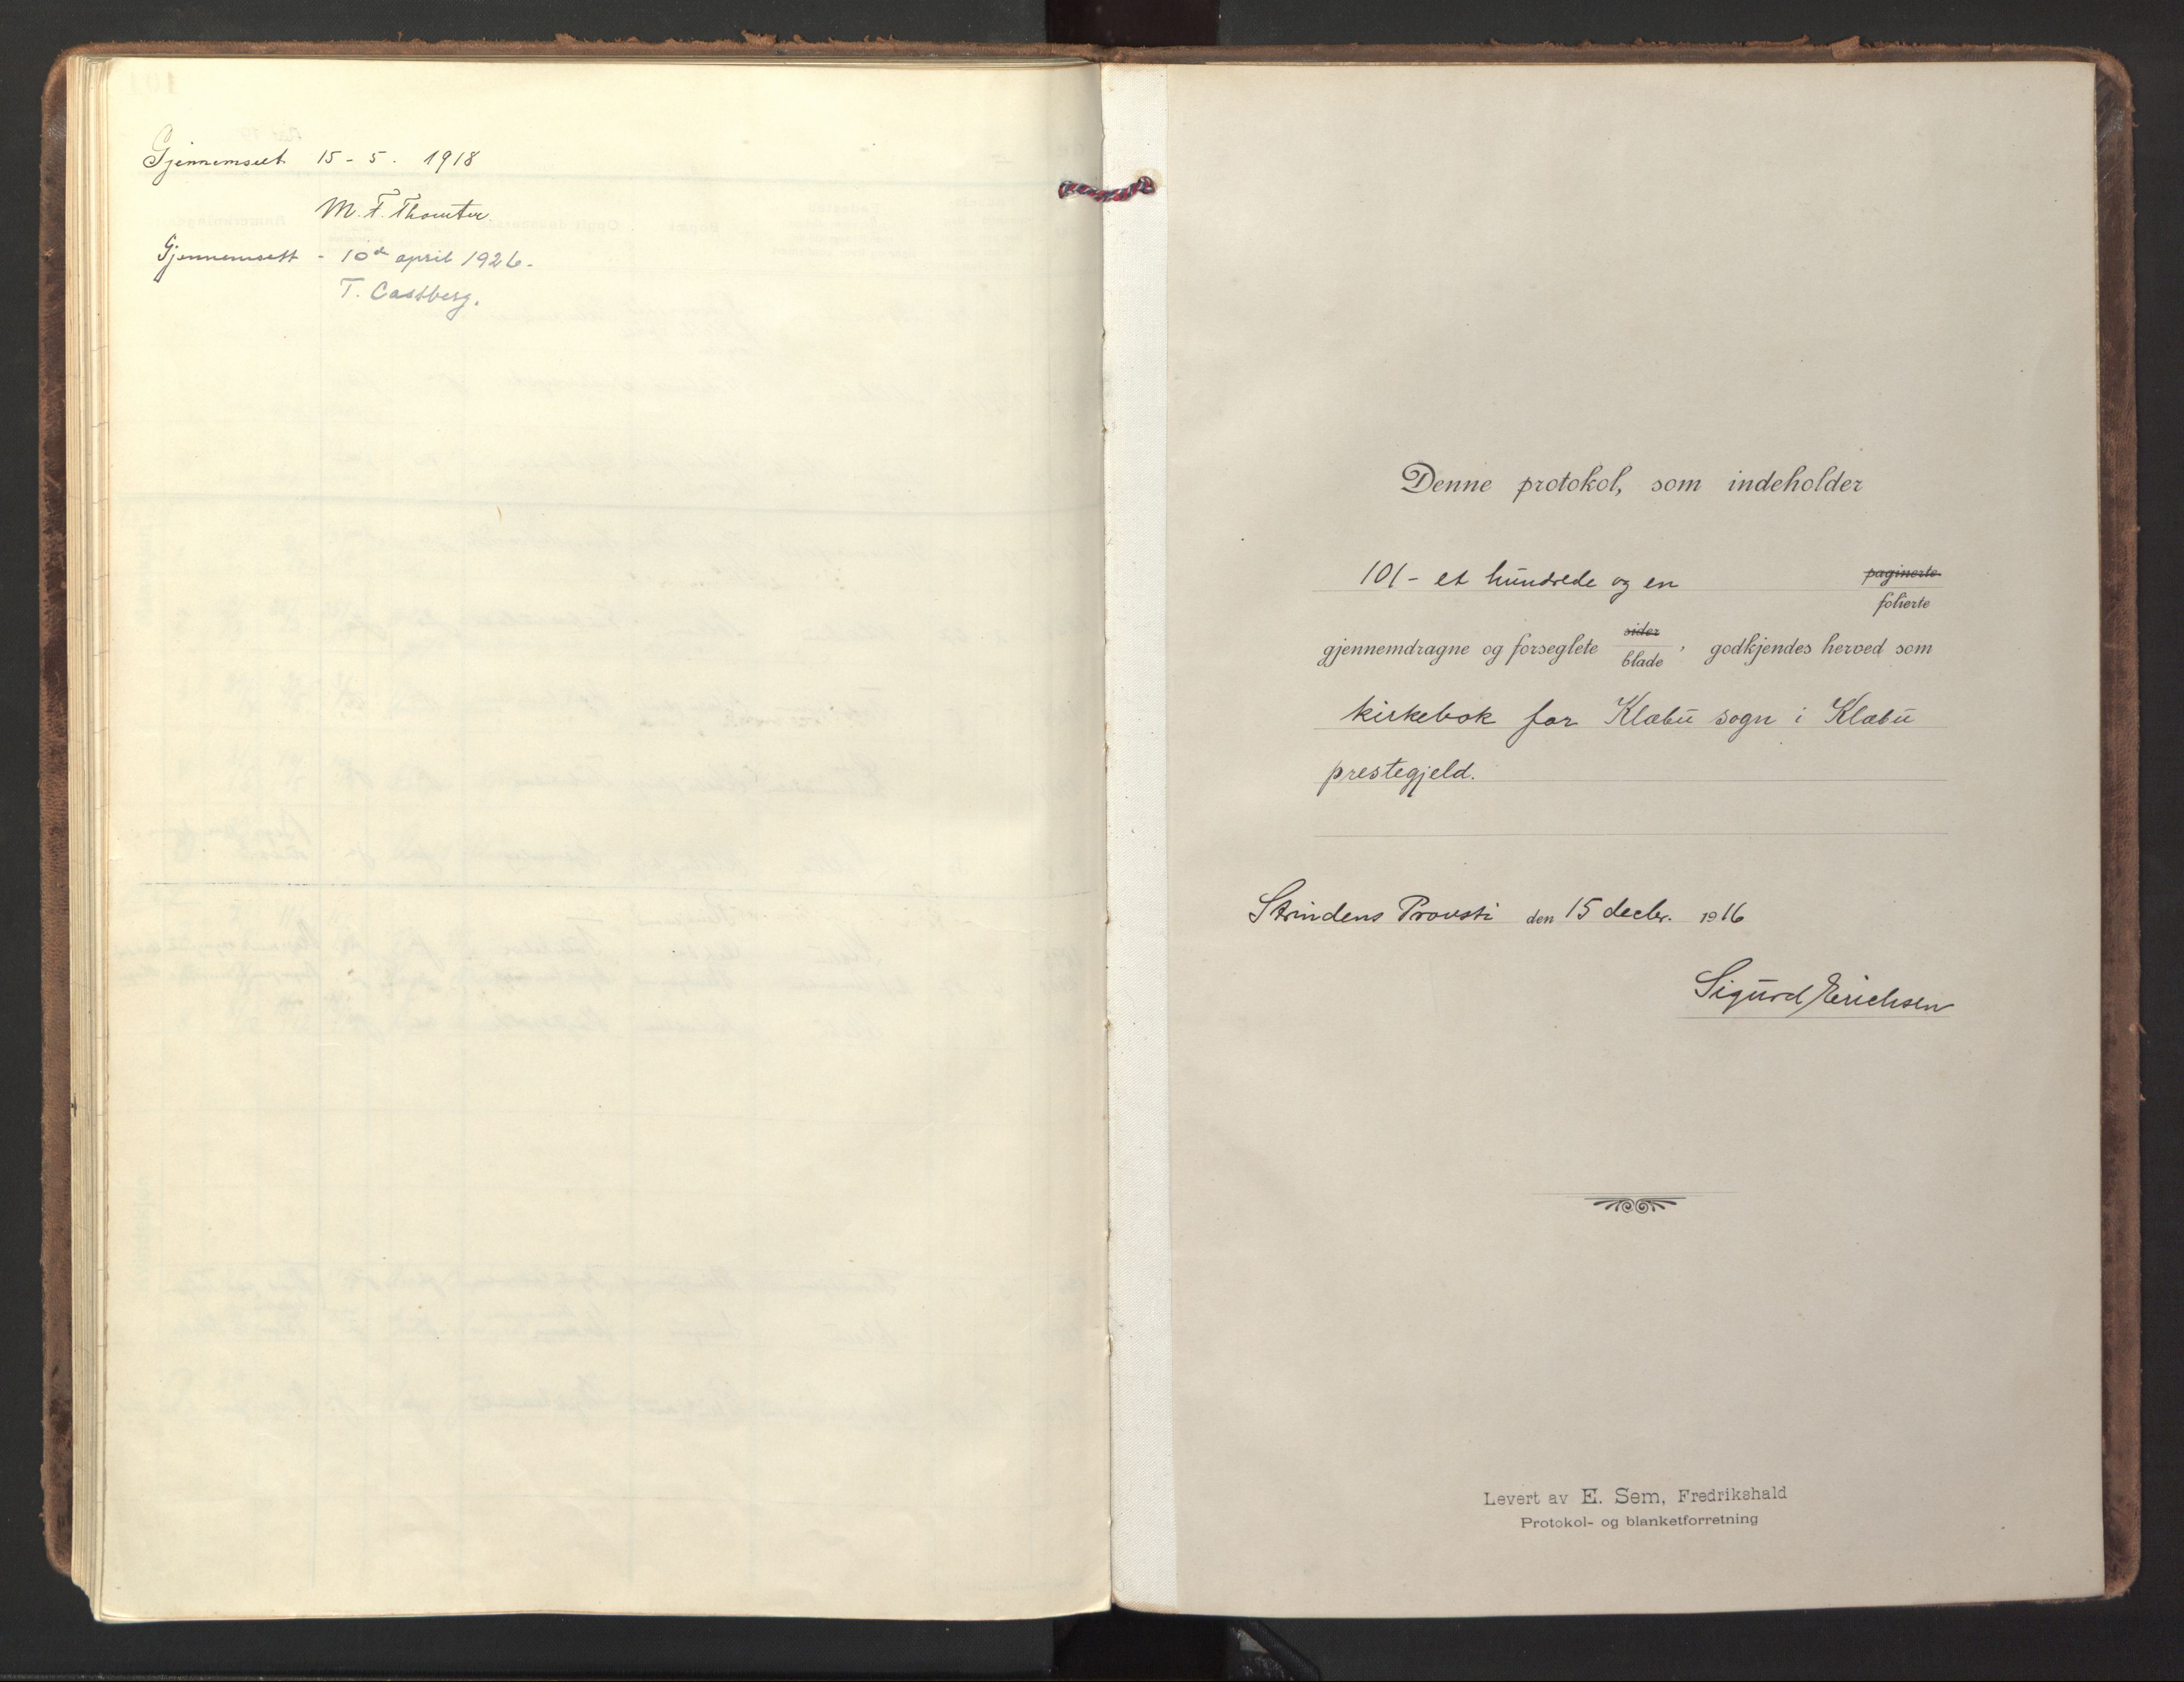 Gjennemseet 15-5. 1918
M. F. Thomter.
Gjennemsett - 10de april 1926-
T. Castberg.
Denne protokol, som indeholder
101- et hundrede og en paginerte
folierte
sider
gjennemdragne og forseglete blade, godkjendes herved som
kirkebok for Klæbu sogn i Klæbu
prestegjeld.
Strindens Provsti den 15 decbr. 1916
Sigurd Erichsen
Levert av E. Sem, Fredrikshald
Protokol- og blanketforretning